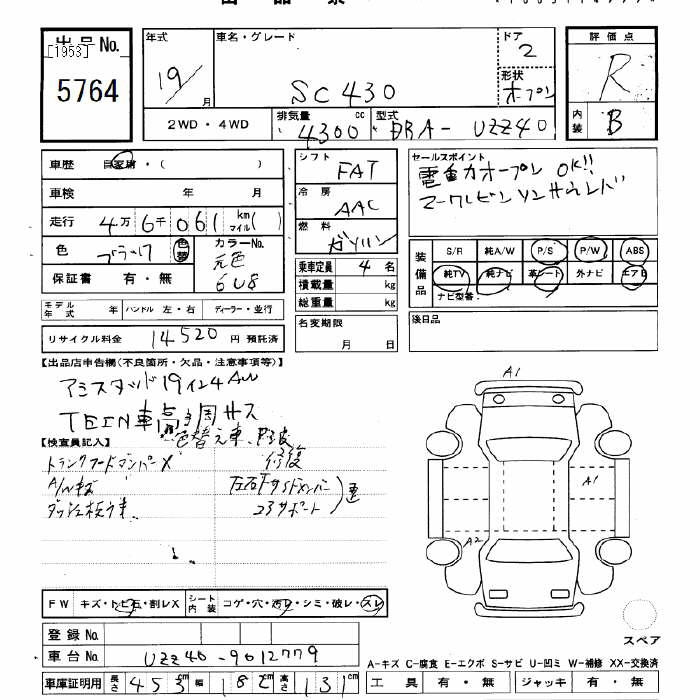 出品 No.
[1953]
5764
年式
19/ 月
車名・グレード
SC430
ドア
2
形状
オープン
評価点
R
内装 B
2WD・4WD
排気量 4300 cc
型式 DBA- UZZ40
車歴 自家用・( )
車検 年 月
走行 4万 6千 061 km マイル( )
色 ブラック 色替
カラーNo. 元色 6U8
保証書 有・無
シフト FAT
冷房 AAC
燃料 ガソリン
乗車定員 4 名
積載量 kg
総重量 kg
名変期限
月 日
セールスポイント
電動オープン OK!!
マークレビンソンサウンド
装備品
S/R 純A/W P/S P/W ABS
純TV 純ナビ 革シート 外ナビ エアB
ナビ型番:
後日品
モデル年式 年 ハンドル 左・右 ディーラー・並行
リサイクル料金 14520 円 預託済
【出品店申告欄(不良箇所・欠品・注意事項等)】
19インチAW
TEIN車高調サス
色替え車
【検査員記入】
修復
A/Wキズ
コアサポート
FW キズ・トビ石・割レX
シート内装 コゲ・穴・汚レ・シミ・破レ・スレ
A1
A1
A2
スペア
登録 No.
車台 No. UZZ40-9012779
車庫証明用 長さ 453 cm 幅 182 cm 高さ 131 cm
A-キズ C-腐食 E-エクボ S-サビ U-凹ミ W-補修 XX-交換済
工具 有・無 ジャッキ 有・無